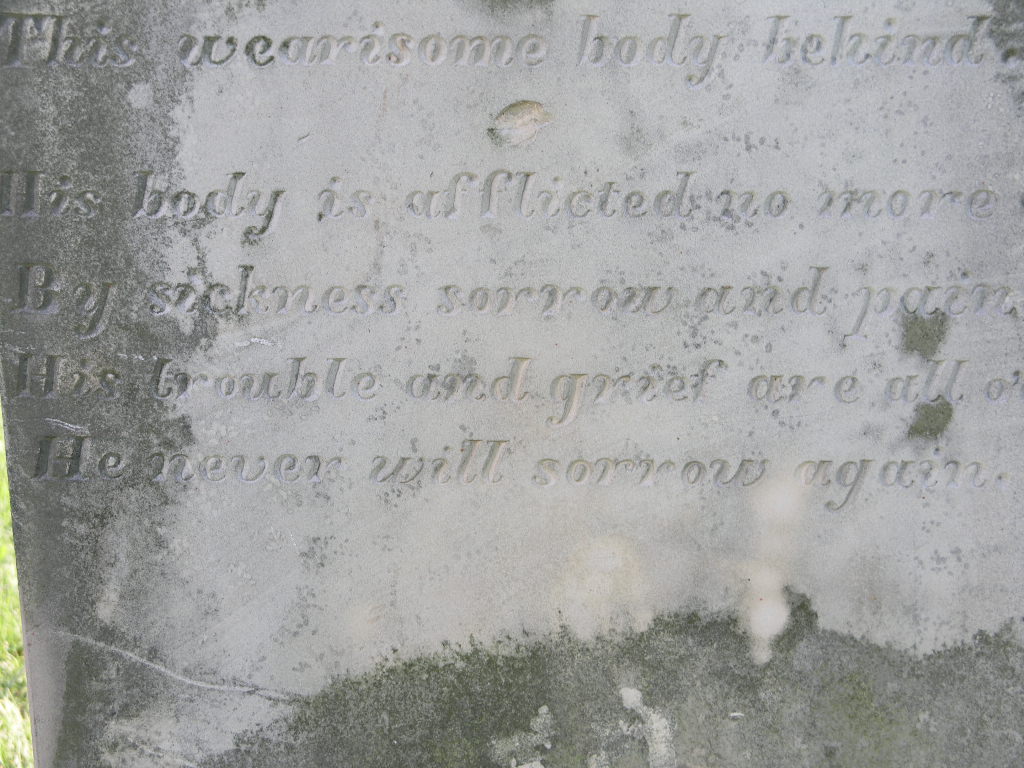 This wearisome body behind.
His body is afflicted no more
By sickness sorrow and pain,
His trouble and grief are all
He never will sorrow again.